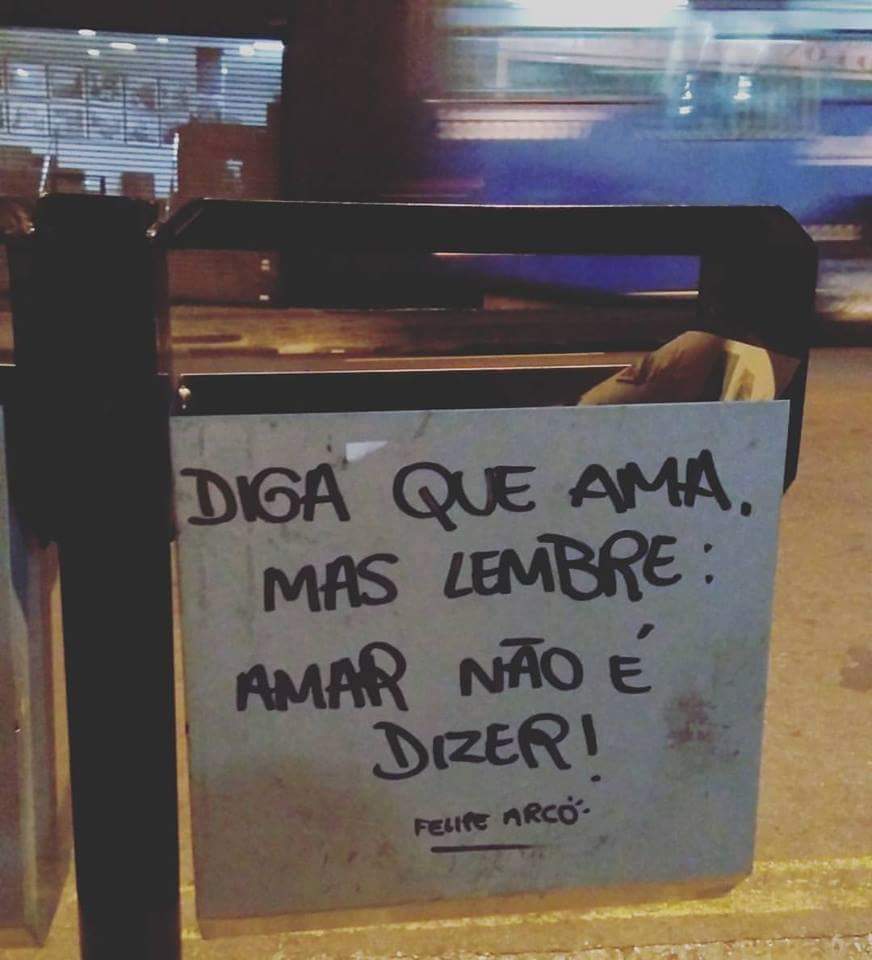 DIGA QUE AMA.
MAS LEMBRE:
AMAR NÃO É
DIZER!
FELIPE ARCO